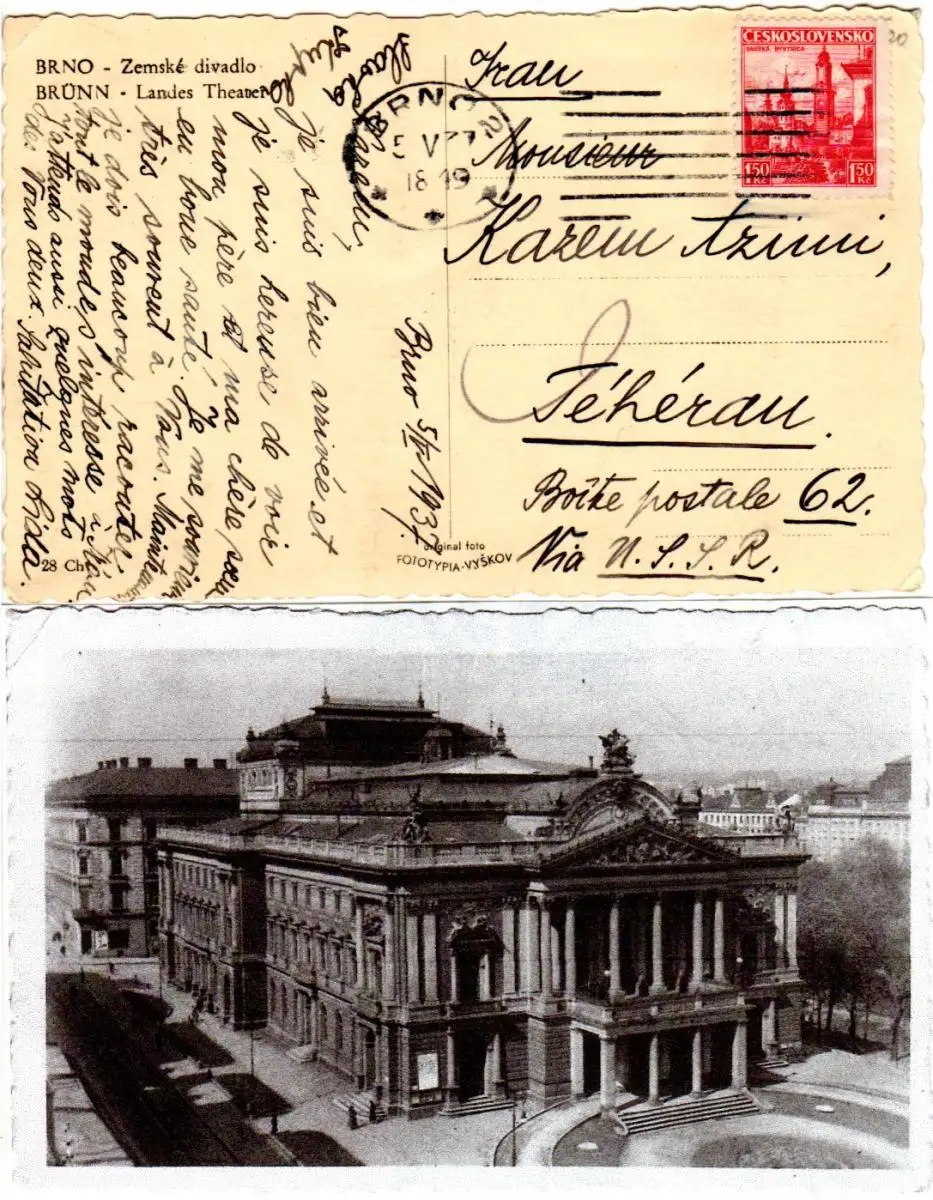 BRNO - Zemské divadlo
BRÜNN - Landes Theater
ČESKOSLOVENSKO
BAŇSKÁ BYSTRICA
1·50 Kč
1·50 Kč
BRNO 2
5 V 37
18 49
Iran
Monsieur
Kazem Azimi,
Téhéran.
Boîte postale 62.
Via U.S.S.R.
Brno 5/V 1937.
je suis bien arrivée et
je suis hereuse de voir
mon père et ma chère soeur
en bone santé. Je me souvien
très souvent à Vous. Mainte
je dois beaucoup raconter.
tout le monde s'interesse à
J'attends aussi quelques mots
de Vous deux. Salutation Lida.
28 Ch
original foto
FOTOTYPIA-VYŠKOV
20